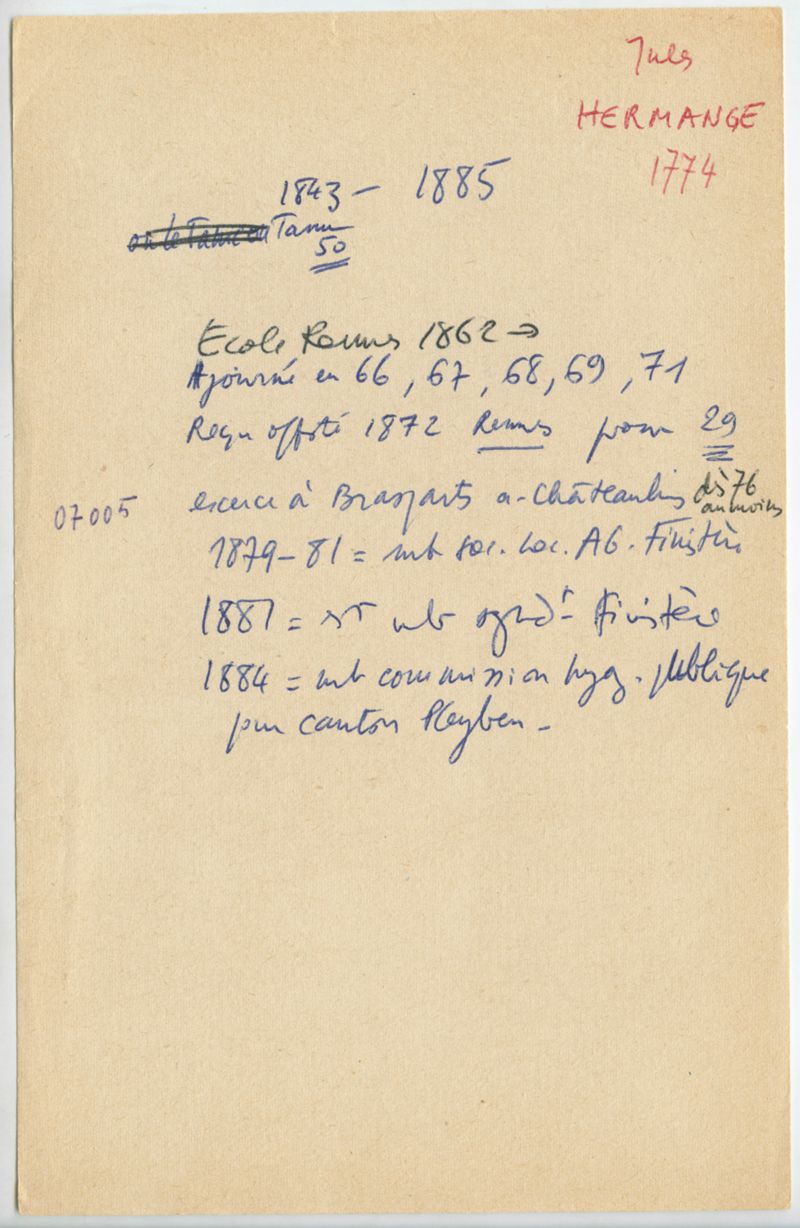 Jules
HERMANGE
1774
1843 – 1885
Tanu
50
Ecole Rennes 1862 →
Ajourné en 66, 67, 68, 69, 71
Reçu offté 1872 Rennes pour 29
07005 exerce à Brasparts a. Châteaulin dès 76
au moins
1879–81 = mb soc. loc. AG. Finistère
1881 = mb synd. Finistère
1884 = mb commission hyg. publique
pour canton Pleyben –